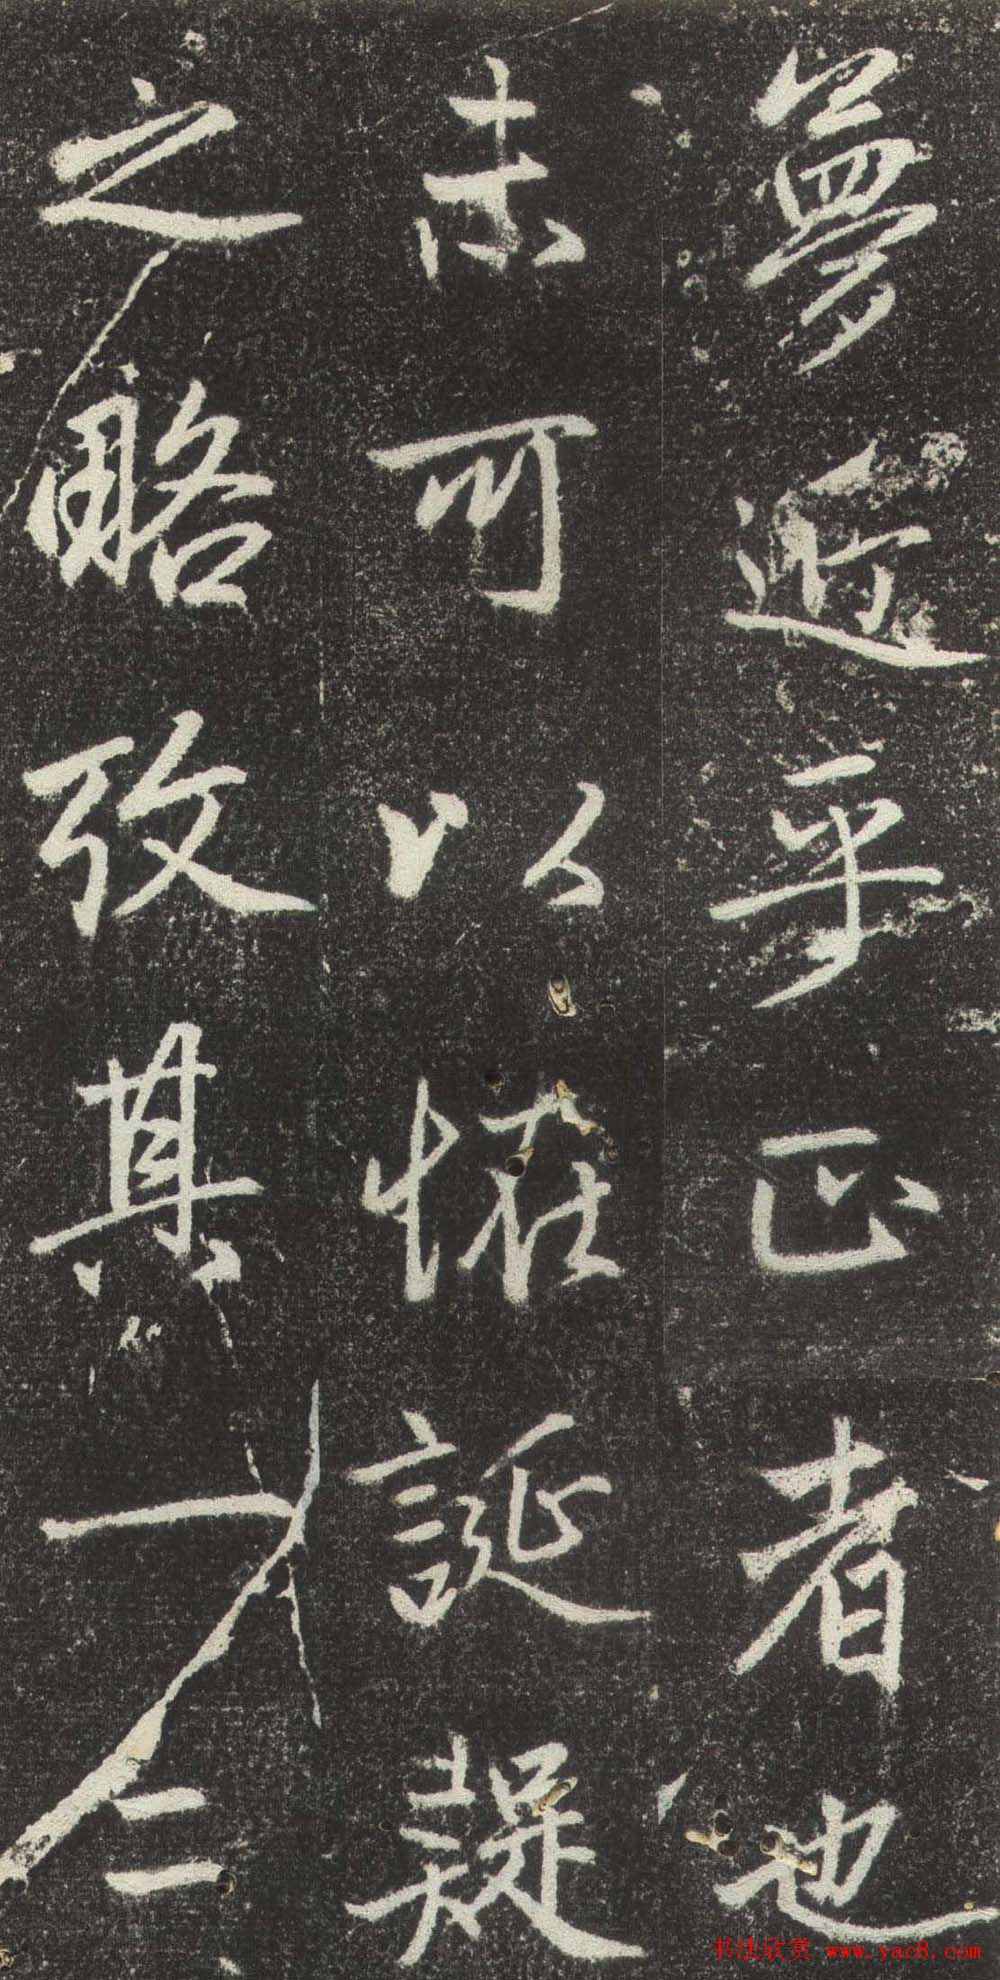 夢近乎正者也
未可以恠誕疑
之略攷其一二
书法欣赏 www.yac8.com